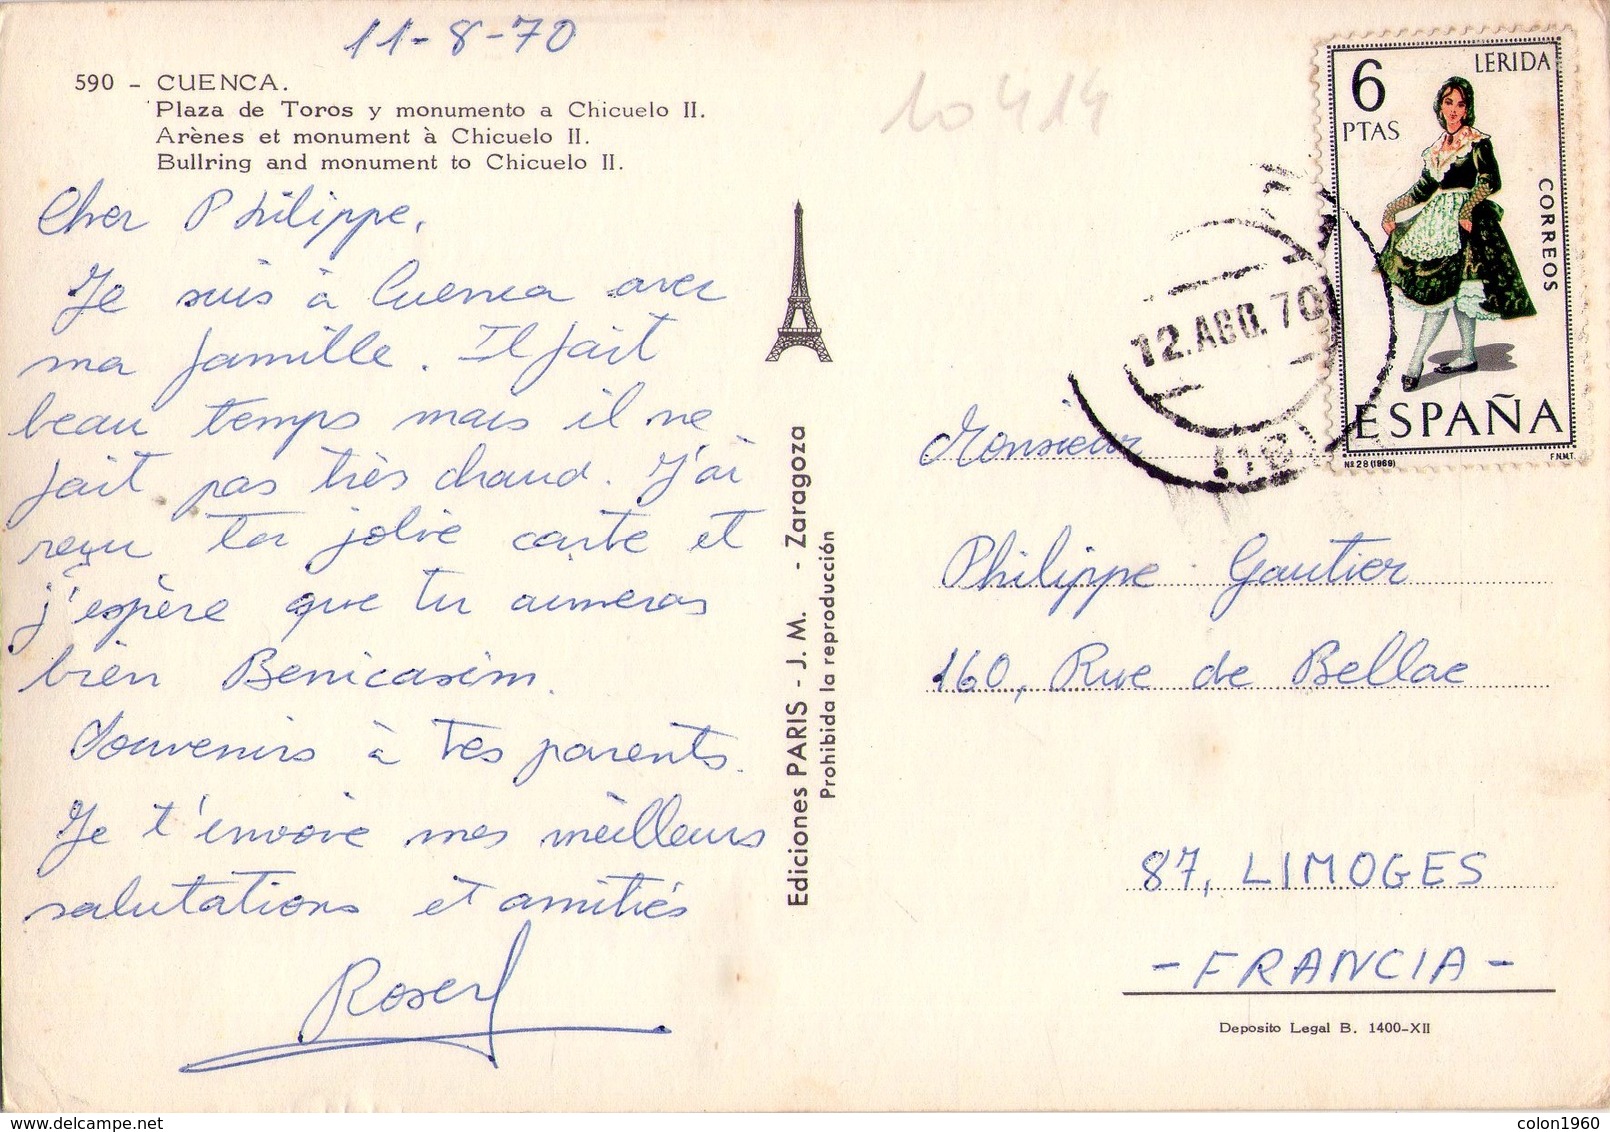 11-8-70
590 - CUENCA.
Plaza de Toros y monumento a Chicuelo II.
Arènes et monument à Chicuelo II.
Bullring and monument to Chicuelo II.
Cher Philippe,
Je suis à Cuenca avec
ma famille. Il fait
beau temps mais il ne
fait pas très chaud. J'ai
reçu ta jolie carte et
j'espère que tu aimeras
bien Benicasim.
Souvenirs à tes parents.
Je t'envoie mes meilleurs
salutations et amitiés
Roser
Ediciones PARIS - J. M. - Zaragoza
Prohibida la reproducción
10414
6
PTAS
LERIDA
CORREOS
ESPAÑA
Nº 28 (1969)
F.N.M.T.
12.AGO.70
Monsieur
Philippe Gautier
160, Rue de Bellac
87, LIMOGES
- FRANCIA -
Deposito Legal B. 1400-XII
delcampe.net
colon1960